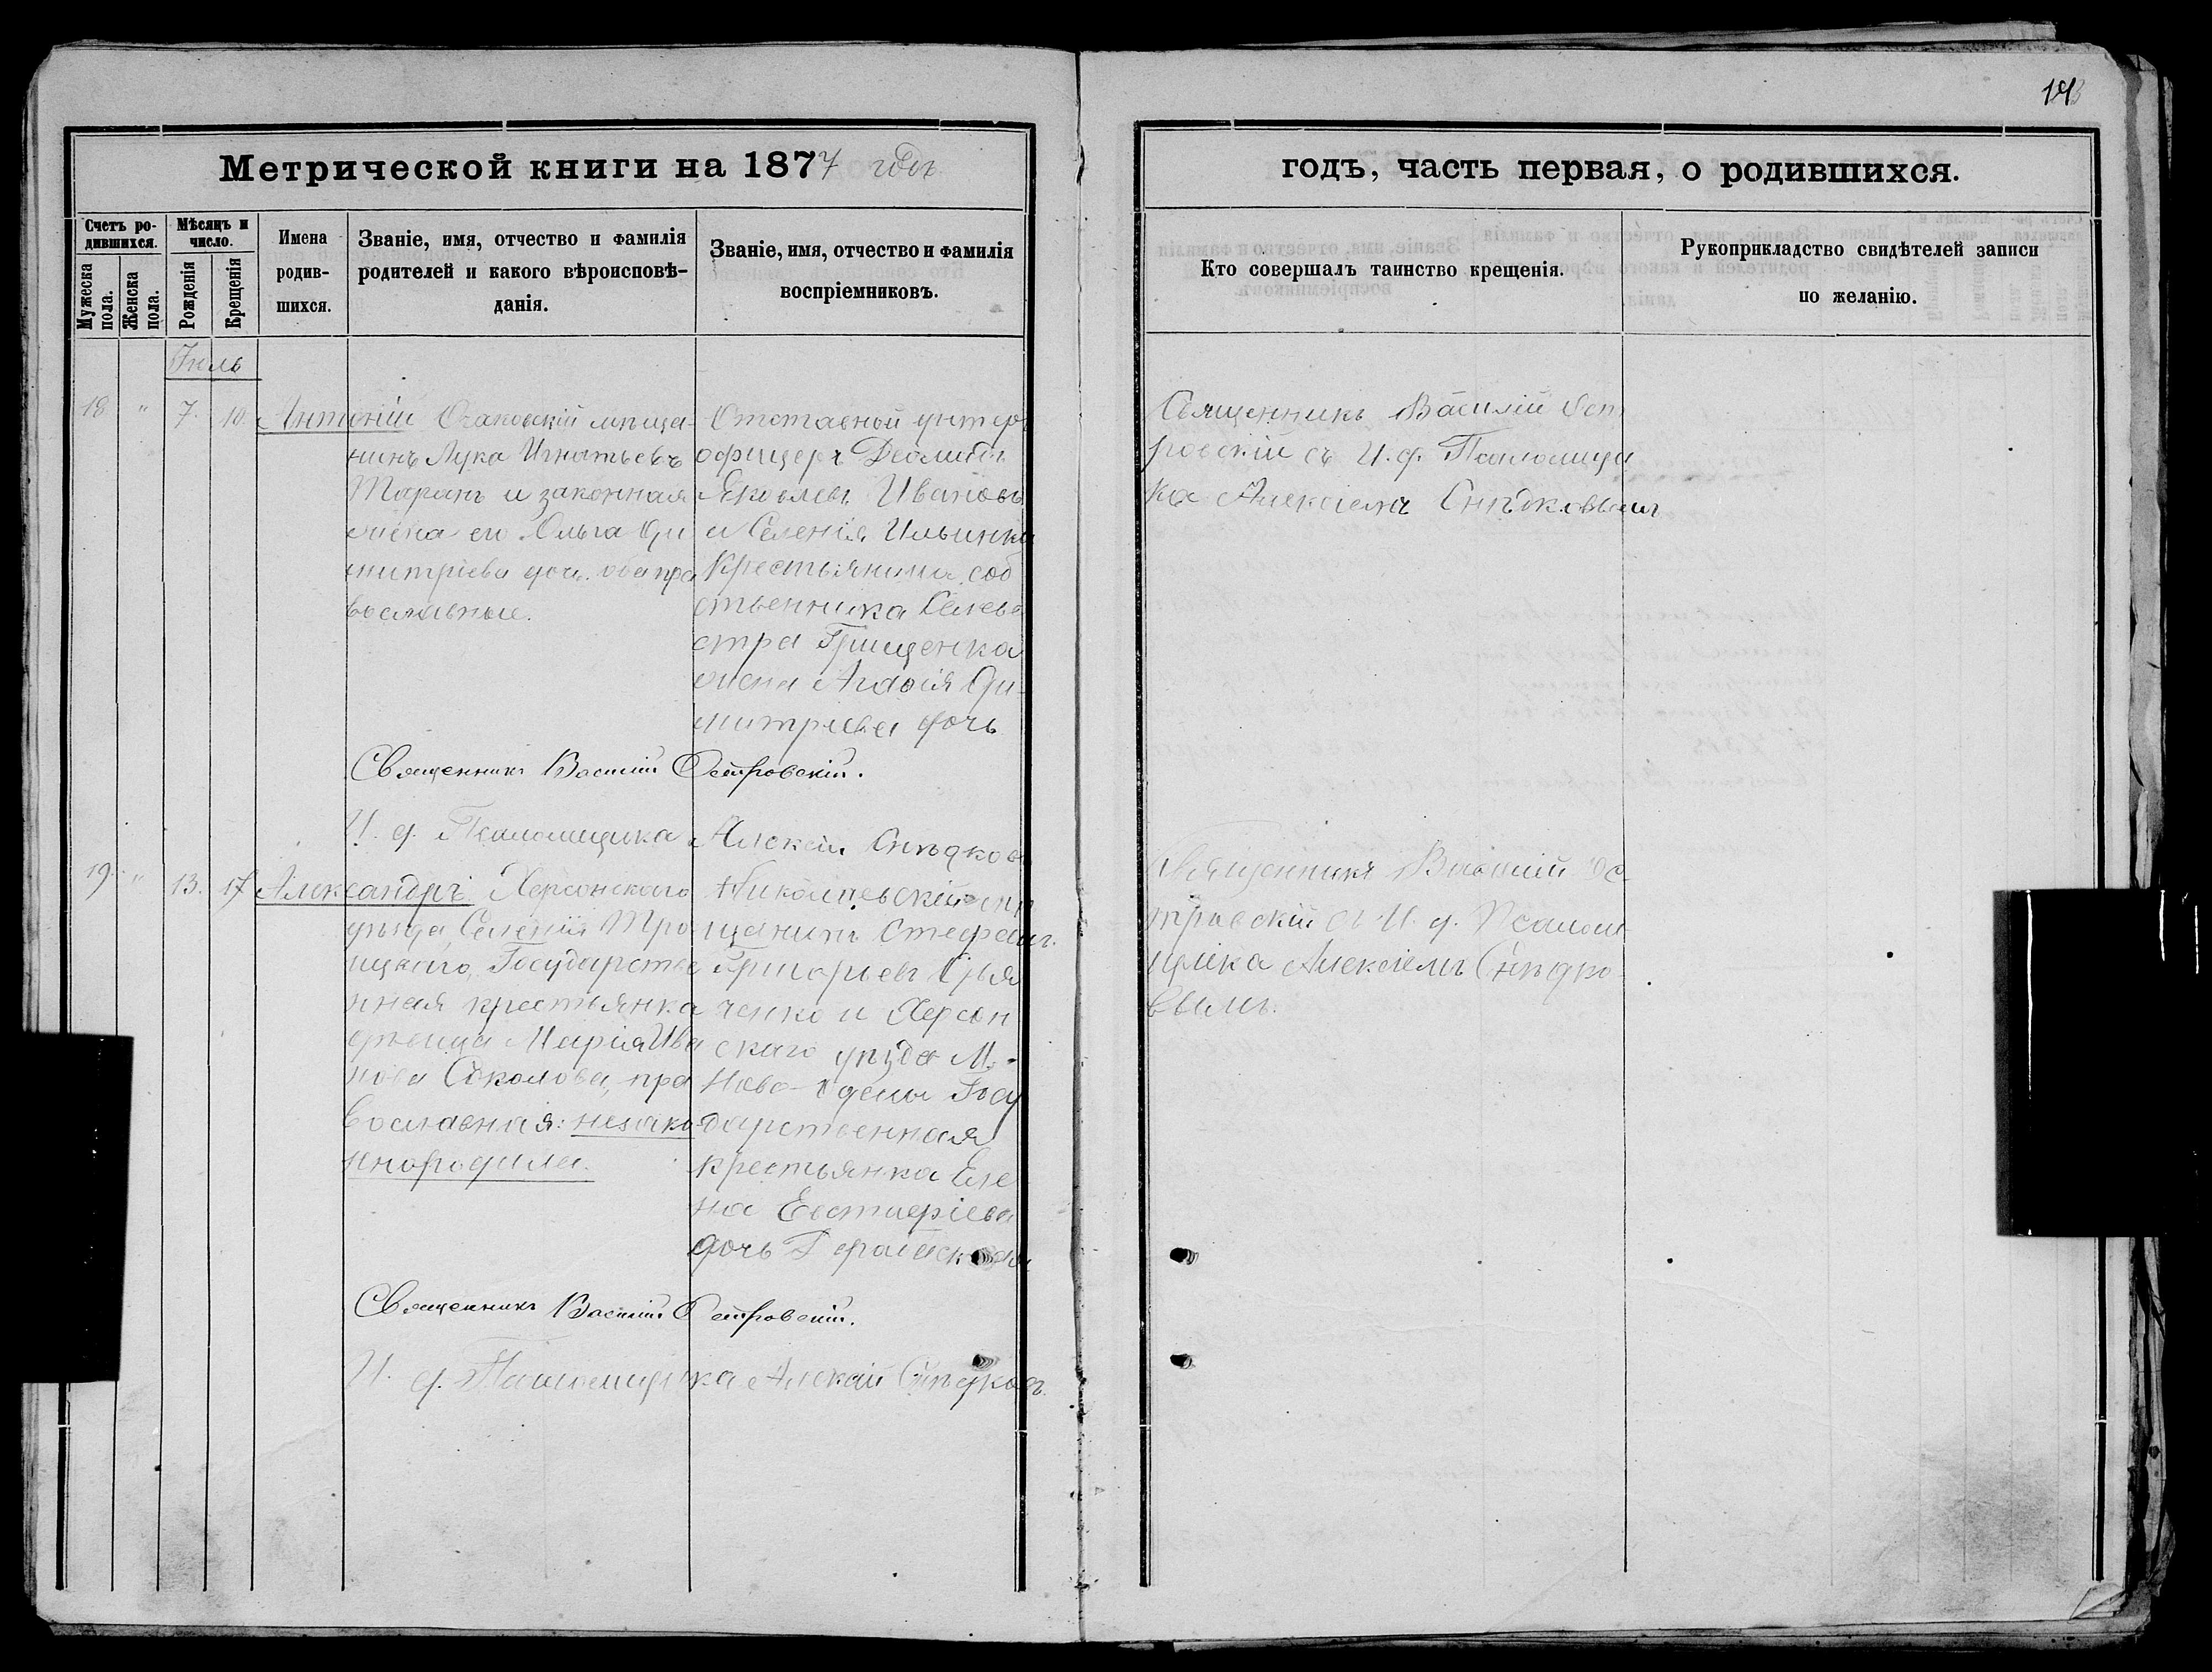 193
Метрической книги на 1877 годъ
годъ, часть первая, о родившихся.
Счетъ ро-
дившихся.
Мужеска
пола.
Женска
пола.
Мѣсяцъ и
число.
Рожденія
Крещенія
Имена
родив-
шихся.
Званіе, имя, отчество и фамилія
родителей и какого вѣроисповѣ-
данія.
Званіе, имя, отчество и фамилія
воспріемниковъ.
Кто совершалъ таинство крещенія.
Рукоприкладство свидѣтелей записи
по желанію.
Іюль
18 " 7. 10. Антоній
Очаковскій мѣща-
нинъ Лука Игнатьевъ
Таранъ и законная
жена его Ольга Ди
митріева дочь. оба пра
вославные.
Отставной унтер
офицеръ Деомидъ
Яковлевъ Ивановъ
и Селенія Ильинки
Крестьянина соб
ственника Селеве
стра Грищенка
жена Агафія Ди-
митріева дочь
Священникъ Василій Ост
ровскій съ И. д. Псаломщи
ка Алексіемъ Снѣдковымъ
Священникъ Василій Островскій.
И. д. Псаломщика Алексій Снѣдковъ
19. " 13. 17 Александръ
Херсонскаго
уѣзда, Селенія Тро
ицкаго, Государстве
нная крестьянка
дѣвица Марія Ива
нова Соколова, пра
вославная: незако
ннородила.
Николаевскій мѣ
щанинъ Стефанъ
Григорьевъ
ченко и Херсон
скаго уѣзда М.
Ново-Одессы Госу
дарственная
крестьянка Еле
на Евстафіева
дочь
Священникъ Василій Ос
тровскій съ И. д. Псалом
щика Алексіемъ Снѣдко
вымъ.
Священникъ Василій Островскій.
И. д. Псаломщика Алексій Снѣдковъ